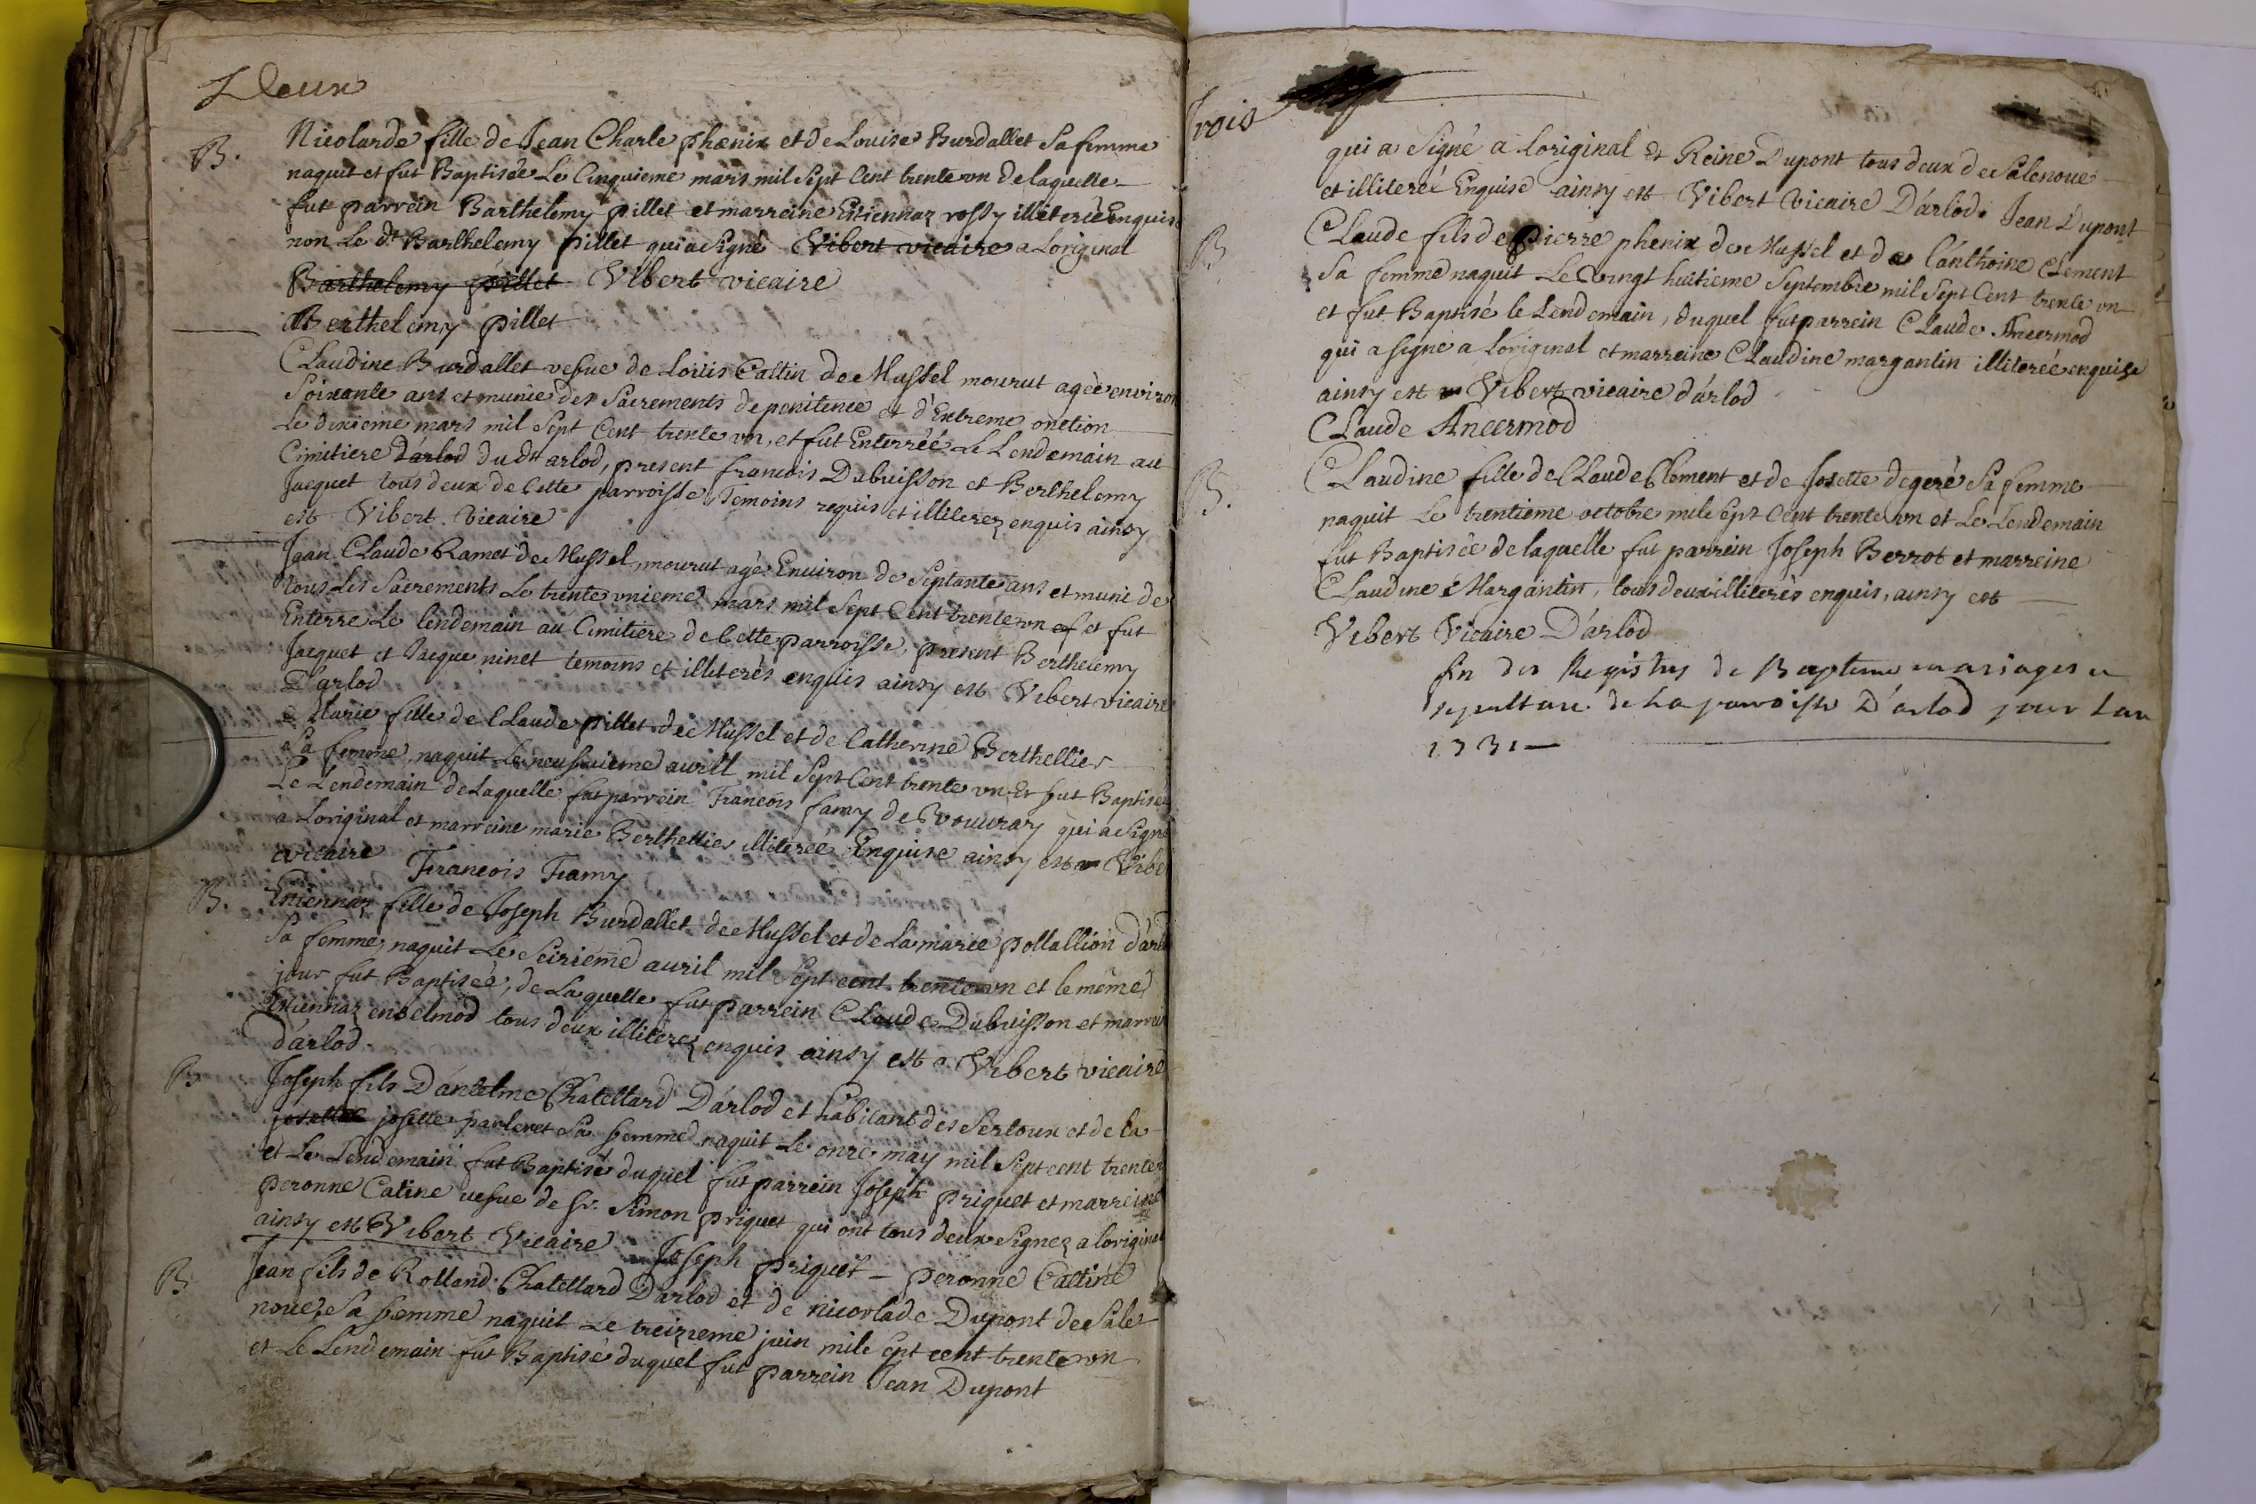 Deux
B. Nicolarde fille de Jean Charle phœnix et de Louise Burdallet Sa femme
naquit et fut Baptisée Le Cinquieme mars mil Sept Cent trente un de laquelle
fut parrein Barthelemy pillet et marreine Estiennaz rossy illiterée Enquise
non Le dt Barthelemy pillet qui a Signé Vibert vicaire a Loriginal
Barthelemy pillet Vibert vicaire
Berthelemy pillet
Claudine Burdallet vefue de Loüis Cattin de Mussel mourut agée environ
Soixante ans et munie des Sacrements de penitence et d'Extreme onction
Le dixieme mars mil Sept Cent trente un, et fut Enterrée Le Lendemain au
Cimitiere d'arlod du dt arlod, present francois Dubuisson et Berthelemy
Jacquet tous deux de Cette parroisse, Temoins requis et illiterez enquis ainsy
est Vibert vicaire
Jean Claude Ramet de Mussel mourut agé Environ de Septante ans et muni de
tous Les Sacrements Le trente unieme mars mil Sept Cent trente un et fut
Enterré Le lendemain au Cimitiere de Cette parroisse, present Berthelemy
Jacquet et Jacque ninet temoins et illiterés enquis ainsy est Vibert vicaire
D'arlod
Marie fille de Claude pillet de Mussel et de Catherine Berthellier
Sa femme, naquit Le neufvieme avrill mil Sept Cent trente un Et fut Baptisée
Le Lendemain de Laquelle fut parrein Francois famy de Vouvray qui a Signé
a Loriginal et marreine marie Berthellier illiterée Enquise ainsy est Vibe
vicaire Francois Framy
B. Etiennaz fille de Joseph Burdallet de Mussel et de La marie pollallion d'arl
Sa femme, naquit Le Seizieme avril mil Sept cent trente un et le même
jour fut Baptisée, de Laquelle fut parrein Claude Dubuisson et marrei
Etiennaz enselmod tous deux illiterez enquis ainsy est Vibert vicaire
D'arlod.
B Joseph fils D'antelme Chatellard D'arlod et habitant des Sertoux et de La
josette parleret Sa femme naquit Le onze may mil Sept cent trente
et Le Lendemain fut Baptisé duquel fut parrein Joseph priquet et marreine
peronne Catine vefue de Sr. Simon priquet qui ont tous deux Signez a loriginal
ainsy est Vibert Vicaire Joseph priquet - peronne Catine
B Jean fils de Rolland Chatellard D'arlod et de nicorlade Dupont de Sale
noue, Sa femme naquit Le treizieme juin mile Sept cent trente un
et Le Lendemain fut Baptisé duquel fut parrein Jean Dupont
Trois
qui a Signé a Loriginal et Reine Dupont tous deux de Salenoue
et illiteré Enquise ainsy est Vibert vicaire D'arlod. Jean Dupont
B Claude fils de pierre phenix de Mussel et de l'anthoine Clement
Sa femme naquit Le vingt huitieme Septembre mil Sept Cent trente un
et fut Baptisé le Lendemain, duquel fut parrein Claude Ancermod
qui a signé a Loriginal et marreine Claudine margantin illiterée enquise
ainsy est Vibert vicaire d'arlod
Claude Ancermod
B. Claudine fille de Claude Clement et de Josette degeré Sa femme
naquit Le trentieme octobre mile Sept Cent trente un et Le Lendemain
fut Baptisée de laquelle fut parrein Joseph Berrot et marreine
Claudine Margantin, tous deux illiterés enquis, ainsy est
Vibert Vicaire D'arlod
fin des Registres de Bapteme mariages et
sepulture de La parroisse D'arlod pour Lan
1731